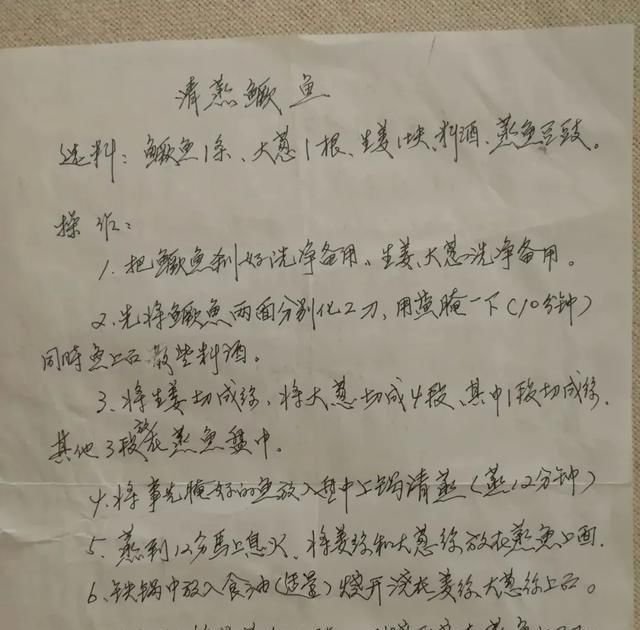 清蒸鳜鱼
选料：鳜鱼1条、大葱1根、生姜1块、料酒、蒸鱼豆豉。
操作：
1、把鳜鱼剁好洗净备用。生姜、大葱洗净备用。
2、先将鳜鱼两面分别化2刀，用盐腌一下（10分钟）
同時鱼上面散些料酒。
3、将生姜切成絲，将大葱切成4段、其中1段切成絲.
其他3段放在蒸鱼盤中。
4、将事先腌好的鱼放入盘中上锅清蒸（蒸12分钟）
5、蒸到12分馬上息火、将姜絲和大葱絲放在蒸鱼上面.
6、铁锅中放入食油（适量）烧开浇在姜絲大葱絲上面。